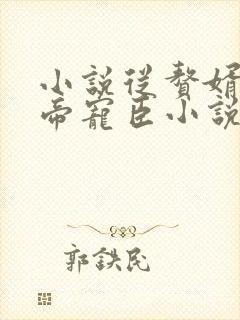 小說從贅婿
帝寵臣小說
郭鉄民